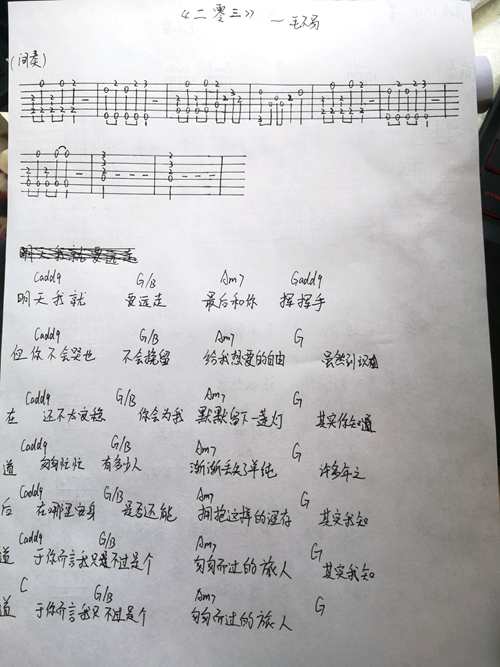 《二零三》 — 毛不易
(间奏)
明天我就要远走
Cadd9 G/B Am7 Gadd9
明天我就 要远走 最后和你 挥挥手
Cadd9 G/B Am7 G
但你不会哭也 不会挽留 给我想要的自由 虽然到现
Cadd9 G/B Am7 G
在 还不太安稳 你会为我 默默留下一盏灯 其实你知道
Cadd9 G/B Am7 G
道 匆匆忙忙 有多少人 渐渐丢失了单纯 许多年之
Cadd9 G/B Am7 G
后 在哪里安身 是否还能 拥抱这样的温存 其实我知
Cadd9 G/B Am7 G
道 于你而言我只是不过是个 匆匆而过的旅人 其实我知
C G/B Am7 G
道 于你而言我又不过是个 匆匆而过的旅人